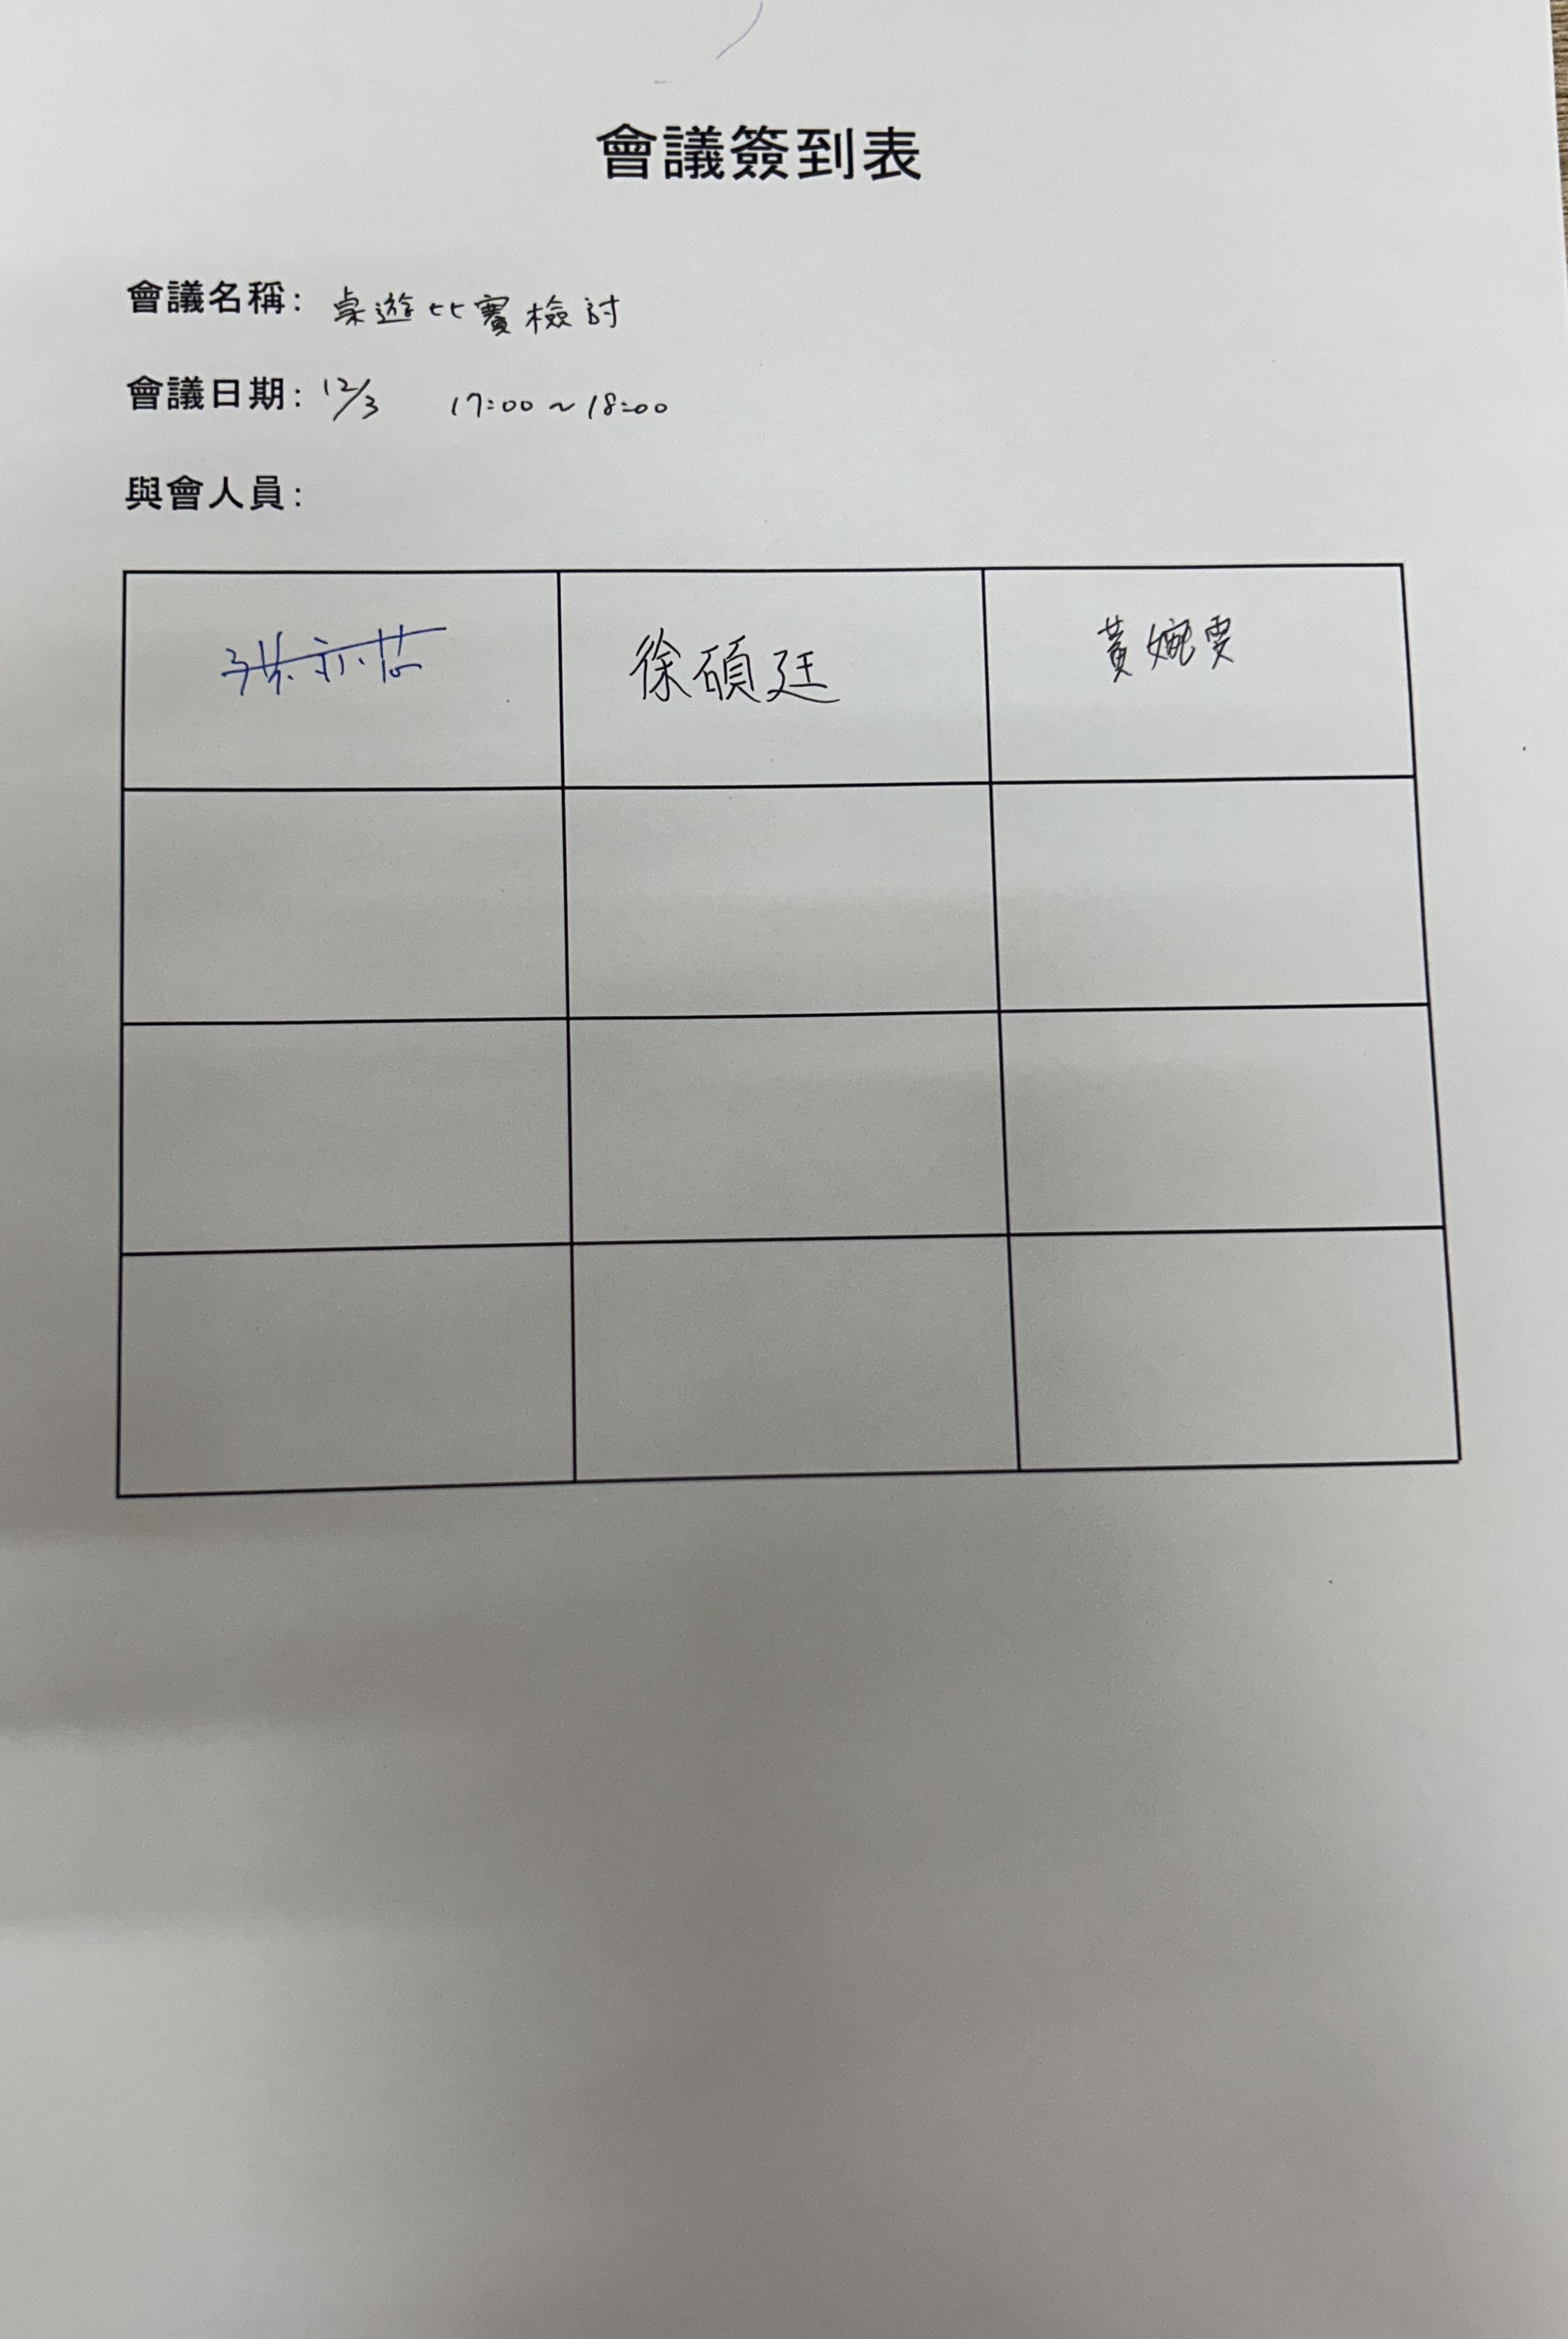 會議簽到表
會議名稱: 桌遊比賽檢討
會議日期: 12/3 17:00~18:00
與會人員:
徐碩廷 黃婉雯